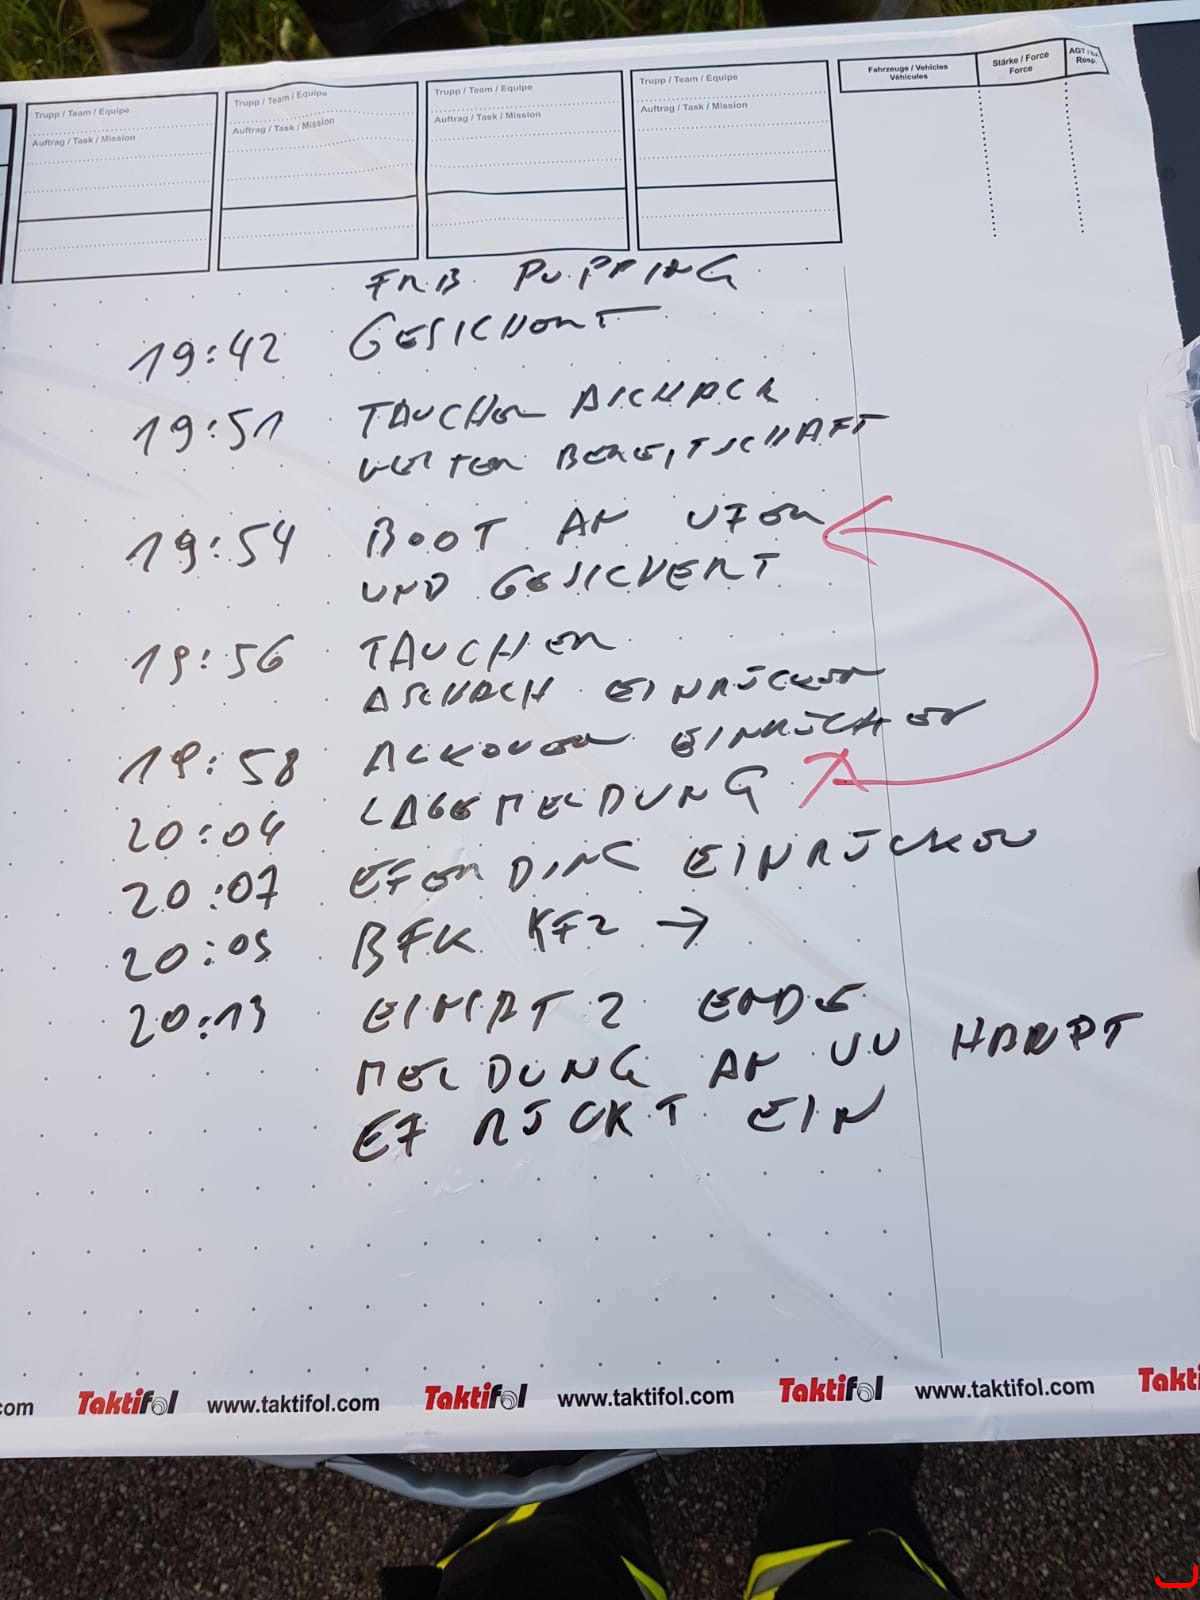 Trupp / Team / Equipe
Auftrag / Task / Mission
Trupp / Team / Equipe
Auftrag / Task / Mission
Trupp / Team / Equipe
Auftrag / Task / Mission
Trupp / Team / Equipe
Auftrag / Task / Mission
Fahrzeuge / Vehicles
Véhicules
Stärke / Force
Force
AGT /
Resp.
PUPPING
19:42 GESICHERT
19:51 TAUCHER ASCHACH
BEREITSCHAFT
19:54 BOOT AN UFER
UND GESICHERT
19:56 TAUCHER
ASCHACH EINRÜCKEN
19:58 ALKOVEN EINRÜCKEN
20:04 LAGEMELDUNG
20:07 EFERDING EINRÜCKEN
20:09 BFK KFZ →
20:13 EINSATZ ENDE
MELDUNG AN
EF RÜCKT EIN
.com Taktifol www.taktifol.com Taktifol www.taktifol.com Taktifol www.taktifol.com Takti